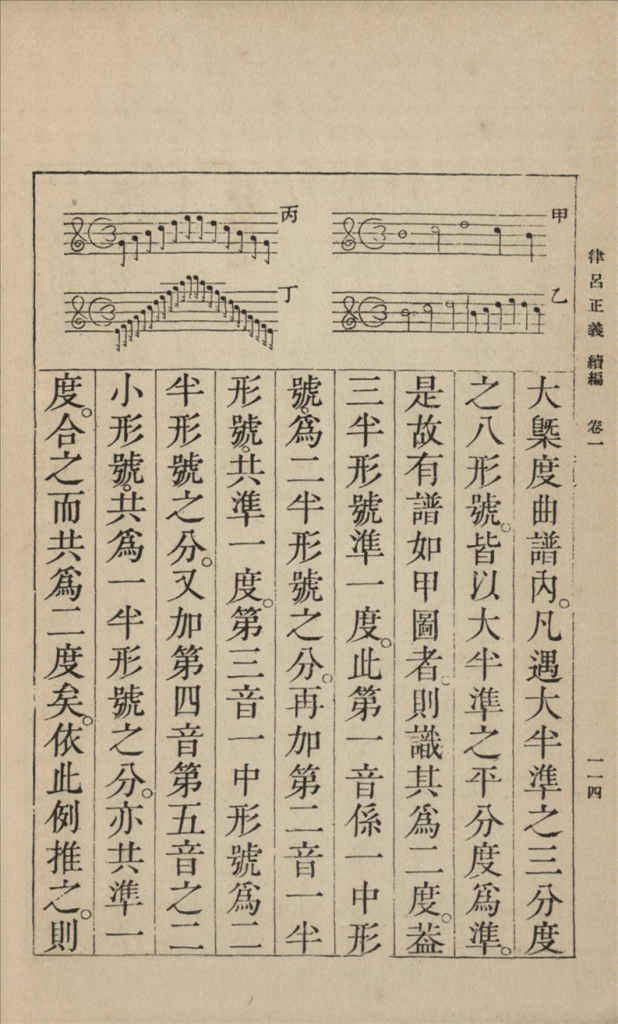 律呂正義 續編 卷一 一一四
甲
乙
丙
丁
大槩度曲譜內。凡遇大半準之三分度
之八形號。皆以大半準之平分度爲準。
是故有譜如甲圖者。則識其爲二度。葢
三半形號準一度。此第一音係一中形
號。爲二半形號之分。再加第二音一半
形號。共準一度。第三音一中形號爲二
半形號之分。又加第四音第五音之二
小形號。共爲一半形號之分。亦共準一
度。合之而共爲二度矣。依此例推之。則